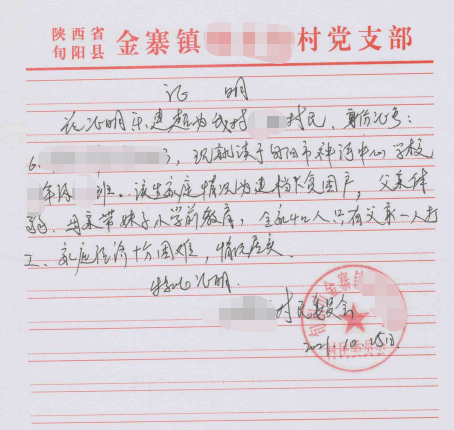 陕西省
旬阳县 金寨镇 村党支部
证明
兹证明 建超为我村 村民,身份证号:
6 ,现就读于旬阳市神河中心学校
年级 班。该生家庭情况为建档贫困户,父亲体
弱,母亲带妹子小学前教育,全家四口人只有父亲一人打
工,家庭经济十分困难,情况属实
特此证明.
村民委员会
2021.10.25日
旬 金寨镇
村民委员会